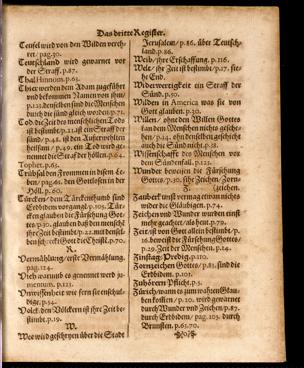 Das dritte Register.
Teufel wird von den Wilden verehret/ pag.30.
Teutschland wird gewarnet vor der Straff. p.87.
Thal Hinnom. p.63.
Thier werden dem Adam zugeführt und bekommen Namen von ihm/
p.122. denselben sind die Menschen durch die sünd gleich worden. p.71.
Tod: die Zeit des menschlichen Tods ist bestimt/p.12. ist eine Straff der
sünd/p.48. ist den Außerwölten
heilsam/ p.49. ein Tod wird genennet die Straf der höllen. p.64
Tophet. p.63.
Trübsal der Frommen in disem Leben/ pag. den Gottlosen in der
Höll. p.60.
Türcken/
Erdbidem vorgangē p.105. Türcken glauben die Fürsehung Gottes/
p.30. glauben daß den menschē
ihr Zeit bestimt/p.22.
V.
Vermählung/ erste Vermählung.
pag. 124.
Unwissenheit wie fern sie entschuldige. p.34.
Volck. den Völckern ist ihre Zeit bestimt. p.19.
W.
Wee wird geschryen über die Statt
Jerusalem/ p.86. über Teutschland. p.86.
Weib/ ihre Erschaffung. p.116.
Welt/ ihr Zeit ist bestimt/ p.17. siehe End.
Widerwertigkeit ein Straff der Sünd. p.50.
Wilden in America was sie von Gott glauben. p.30.
Willen/ ohne den Willen Gottes kan dem Menschen nichts geschehen/
auch die Sünd nicht. p.28.
Wissenschafft des Menschen vor dem Sündenfall. p.123.
Wunder beweisen die Fürsehung Gottes/ p.30. sihe Zeichen.
Z.
Zauberkunst vermag etwan nichts wider die Gläubigen. p.74.
Zeichen und Wunder wurden einst mehr geachtet/ als heut. p.79.
Zeit/ ist von Gott allein bestimt/ p.
16. beweißt die Fürsehung Gottes/
p.29. Zeit der Menschen. p.14.
Zinstags-Predig. p.110.
Zornzeichen Gottes/ p.83. sind die Erdbidem. p.101.
Zuhörern Pflicht. p.3.
Zürich/ wann es zum wahren Glauben kossen/ p.10. wird gewarnet
durch Wunder und Zeichen. p.87.
durch Erdbidem/ pag.103. durch
Brunsten. p.65.70.